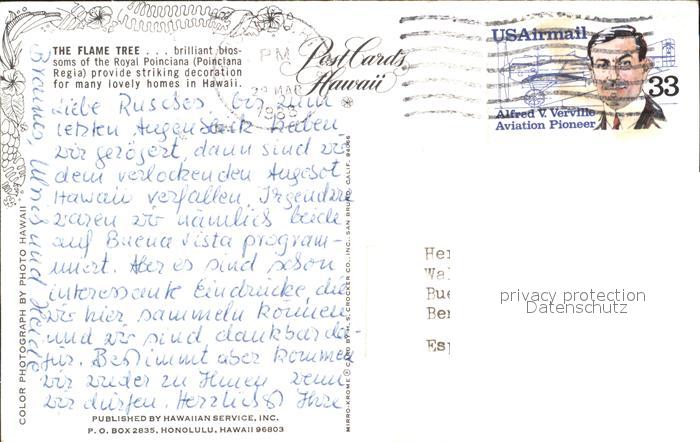 THE FLAME TREE . . . brilliant blos-
soms of the Royal Poinciana (Poinciana
Regia) provide striking decoration
for many lovely homes in Hawaii.
Liebe Rusches, bis zum
letzten Augenblick haben
wir gezögert, dann sind wir
dem verlockenden Angebot
Hawaii verfallen. Irgendwie
waren wir nämlich beide
auf Buena Vista program-
miert. Aber es sind schon
interessante Eindrücke, die
wir hier sammeln können
und wir sind dankbar da-
für. Bestimmt aber kommen
wir wieder zu Ihnen, wenn
wir dürfen. Herzlichst Ihre
Ulrich und Heide
PUBLISHED BY HAWAIIAN SERVICE, INC.
P. O. BOX 2835, HONOLULU, HAWAII 96803
COLOR PHOTOGRAPH BY PHOTO HAWAII
MIRRO-KROME ® CARD BY H. S. CROCKER CO., INC., SAN BRUNO, CALIF. 94066
Post Cards
Hawaii
PM
MAR
USAirmail
33
Alfred V. Verville
Aviation Pioneer
He
Wa
Bue
Be
Es
privacy protection
Datenschutz